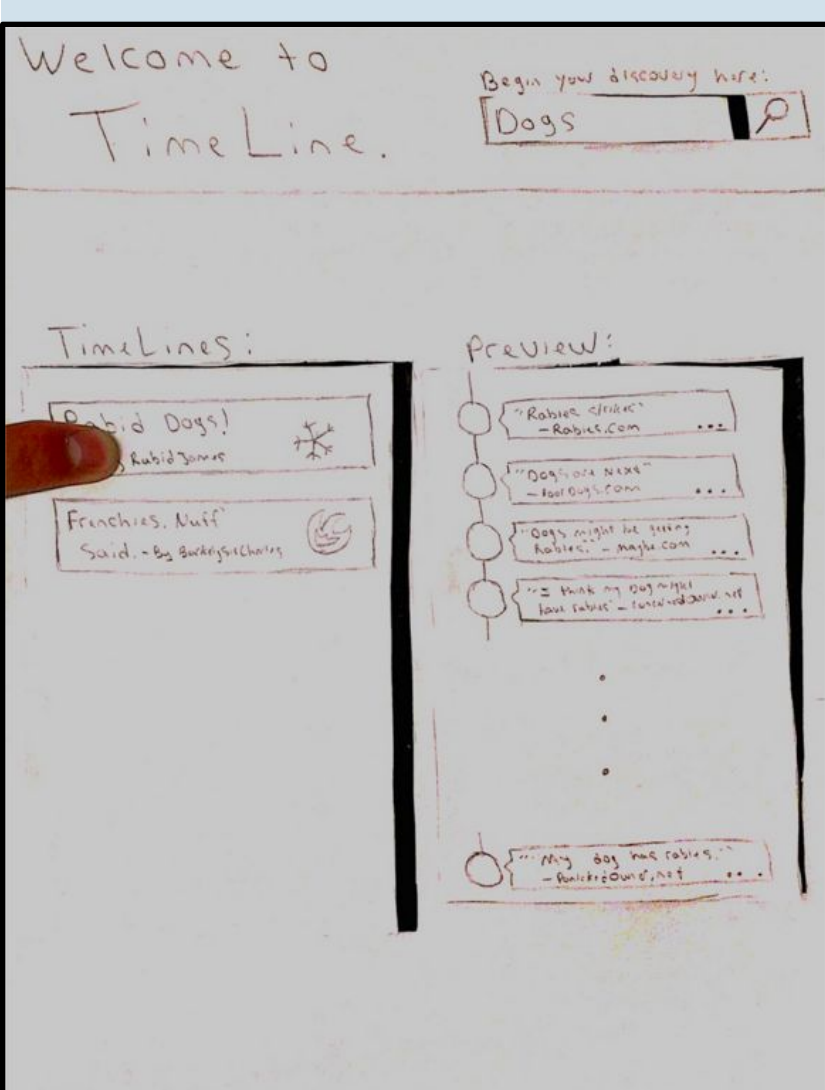 Welcome to
TimeLine.
Begin your discovery here:
Dogs
TimeLines:
Rabid Dogs!
Rabid James
Frenchies. Nuff
Said. - By
Preview:
"Rabies strikes"
- Rabies.com
...
"Dogs are Next"
- PoorDogs.com
...
"Dogs might be getting
Rabies." - maybe.com
...
"I think my Dog might
have rabies" -
...
"My dog has rabies."
- PanickedOwner.net
...